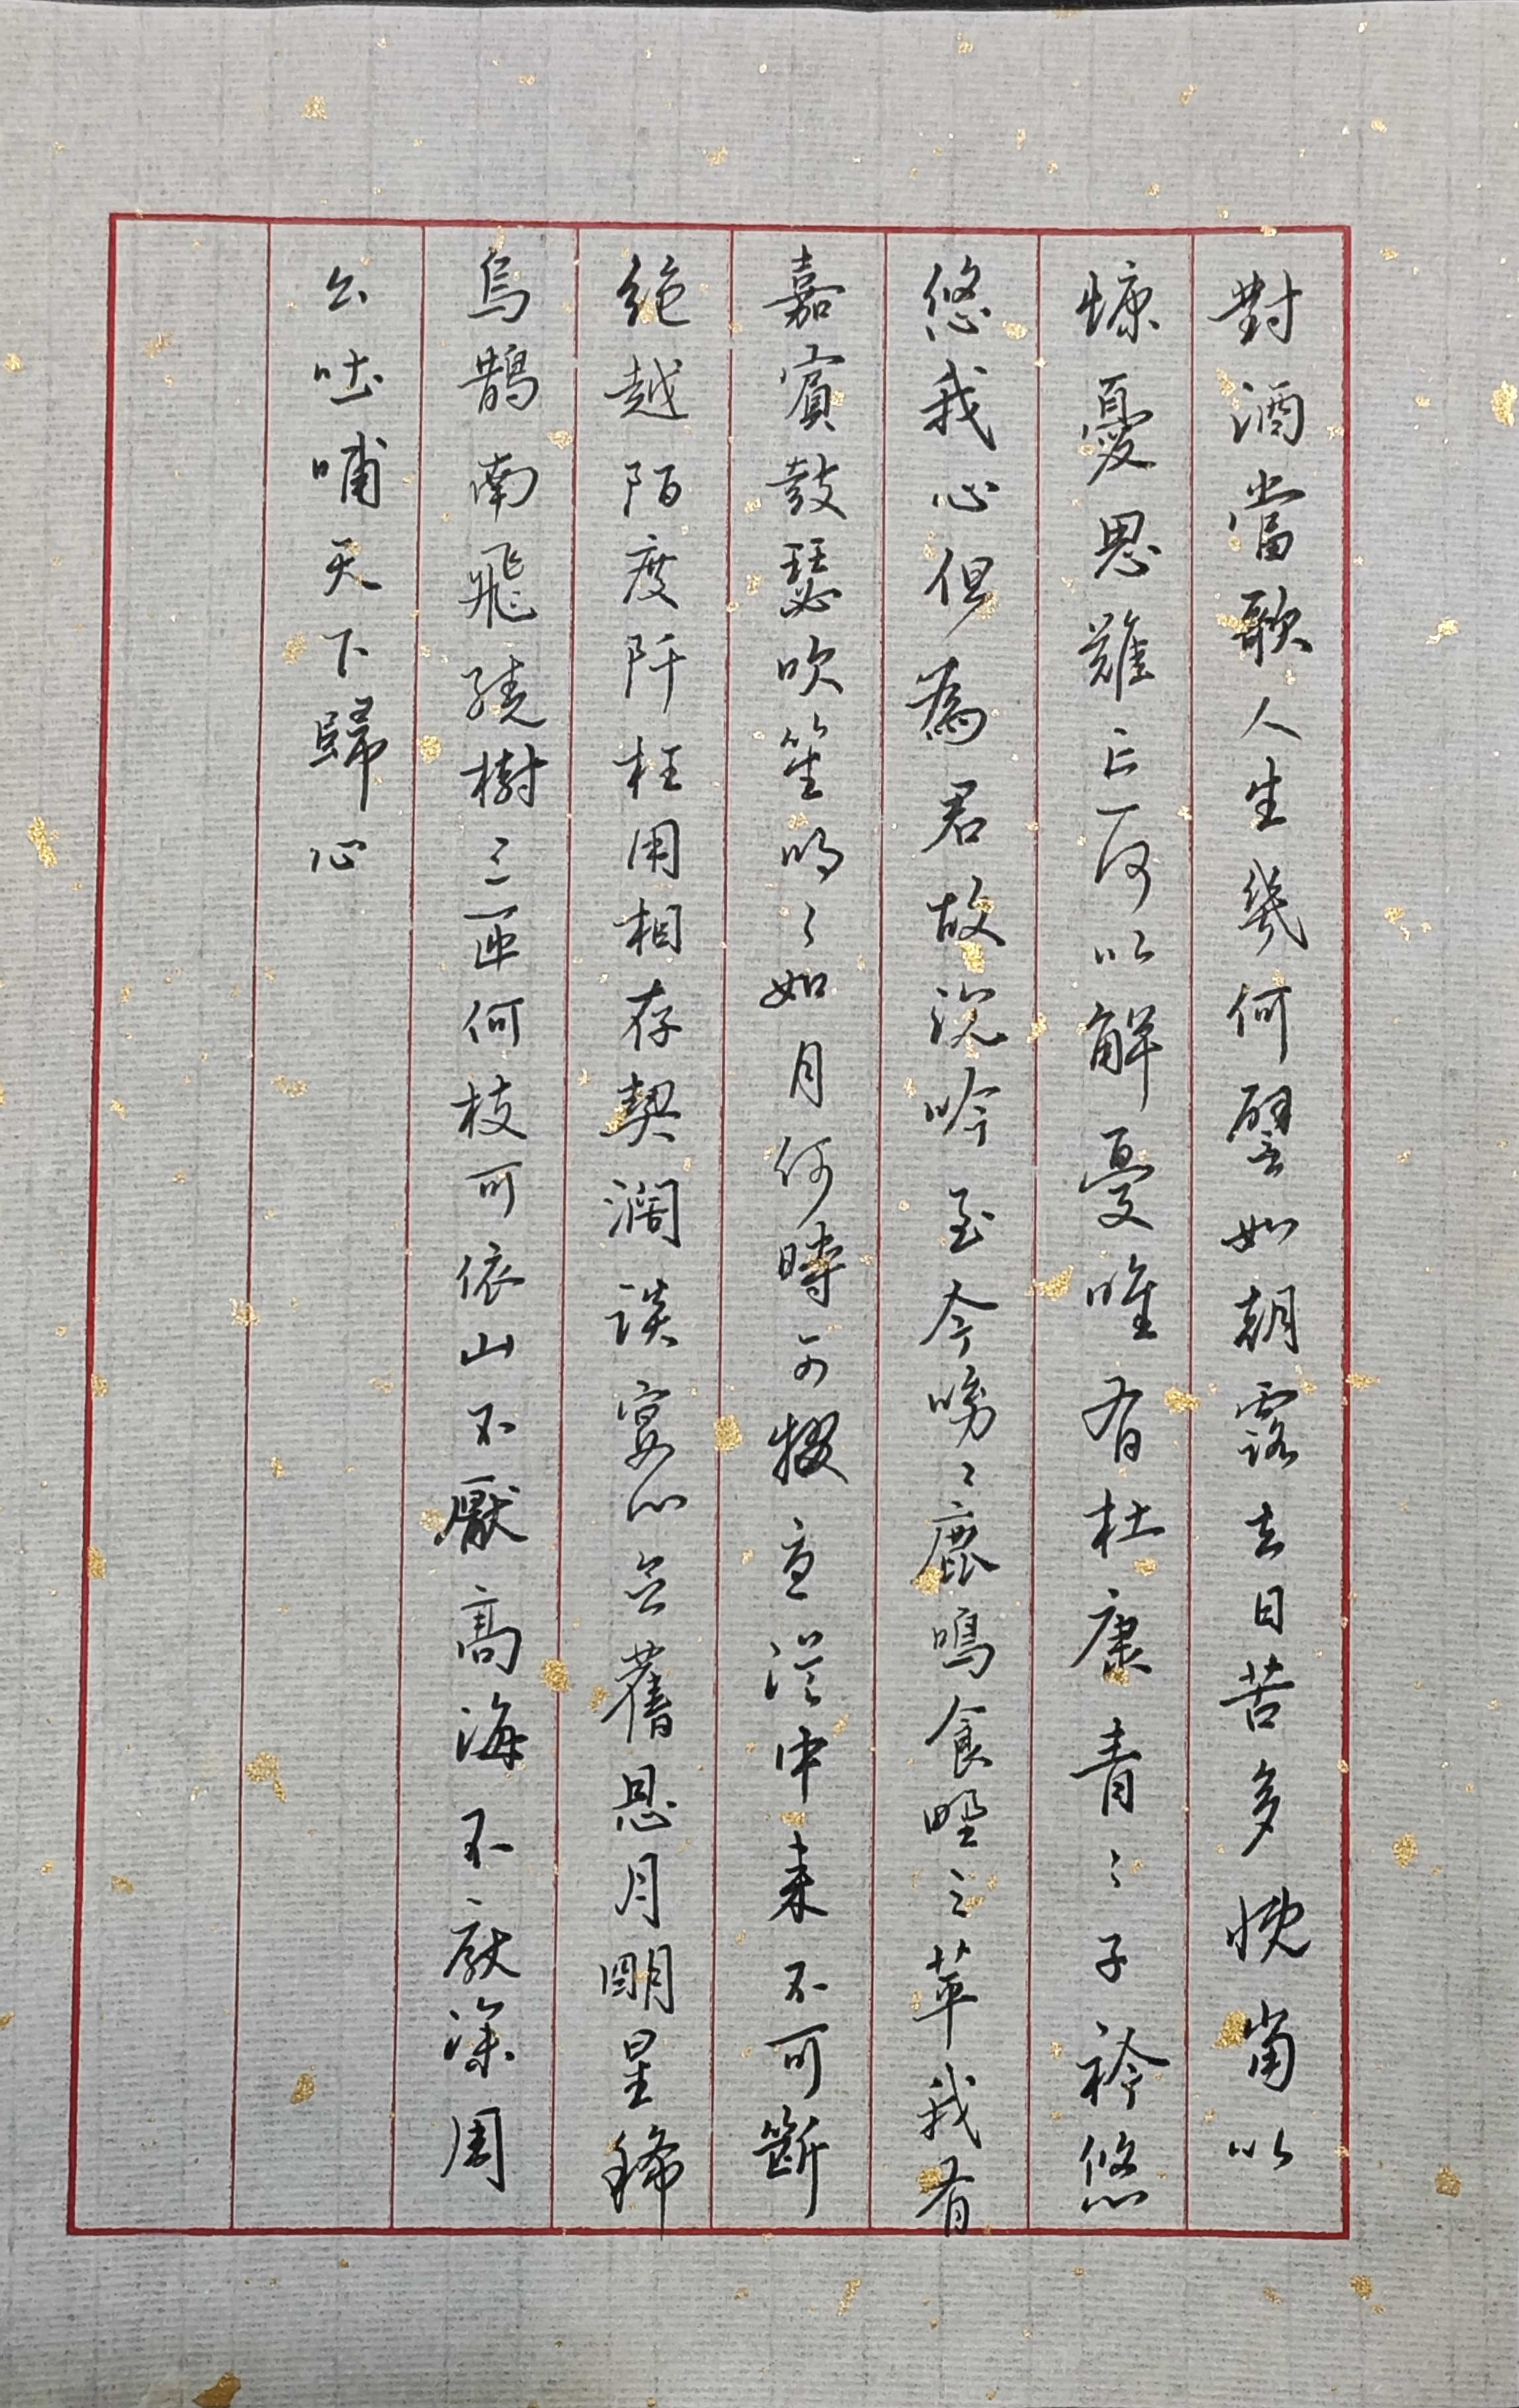 對酒當歌人生幾何譬如朝露去日苦多慨當以
慷憂思難忘何以解憂唯有杜康青〻子衿悠
悠我心但為君故沉吟至今呦〻鹿鳴食野之苹我有
嘉賓鼓瑟吹笙明〻如月何時可掇憂從中来不可斷
絶越陌度阡枉用相存契濶談宴心念舊恩月明星稀
烏鵲南飛繞樹三匝何枝可依山不厭高海不厭深周
公吐哺天下歸心